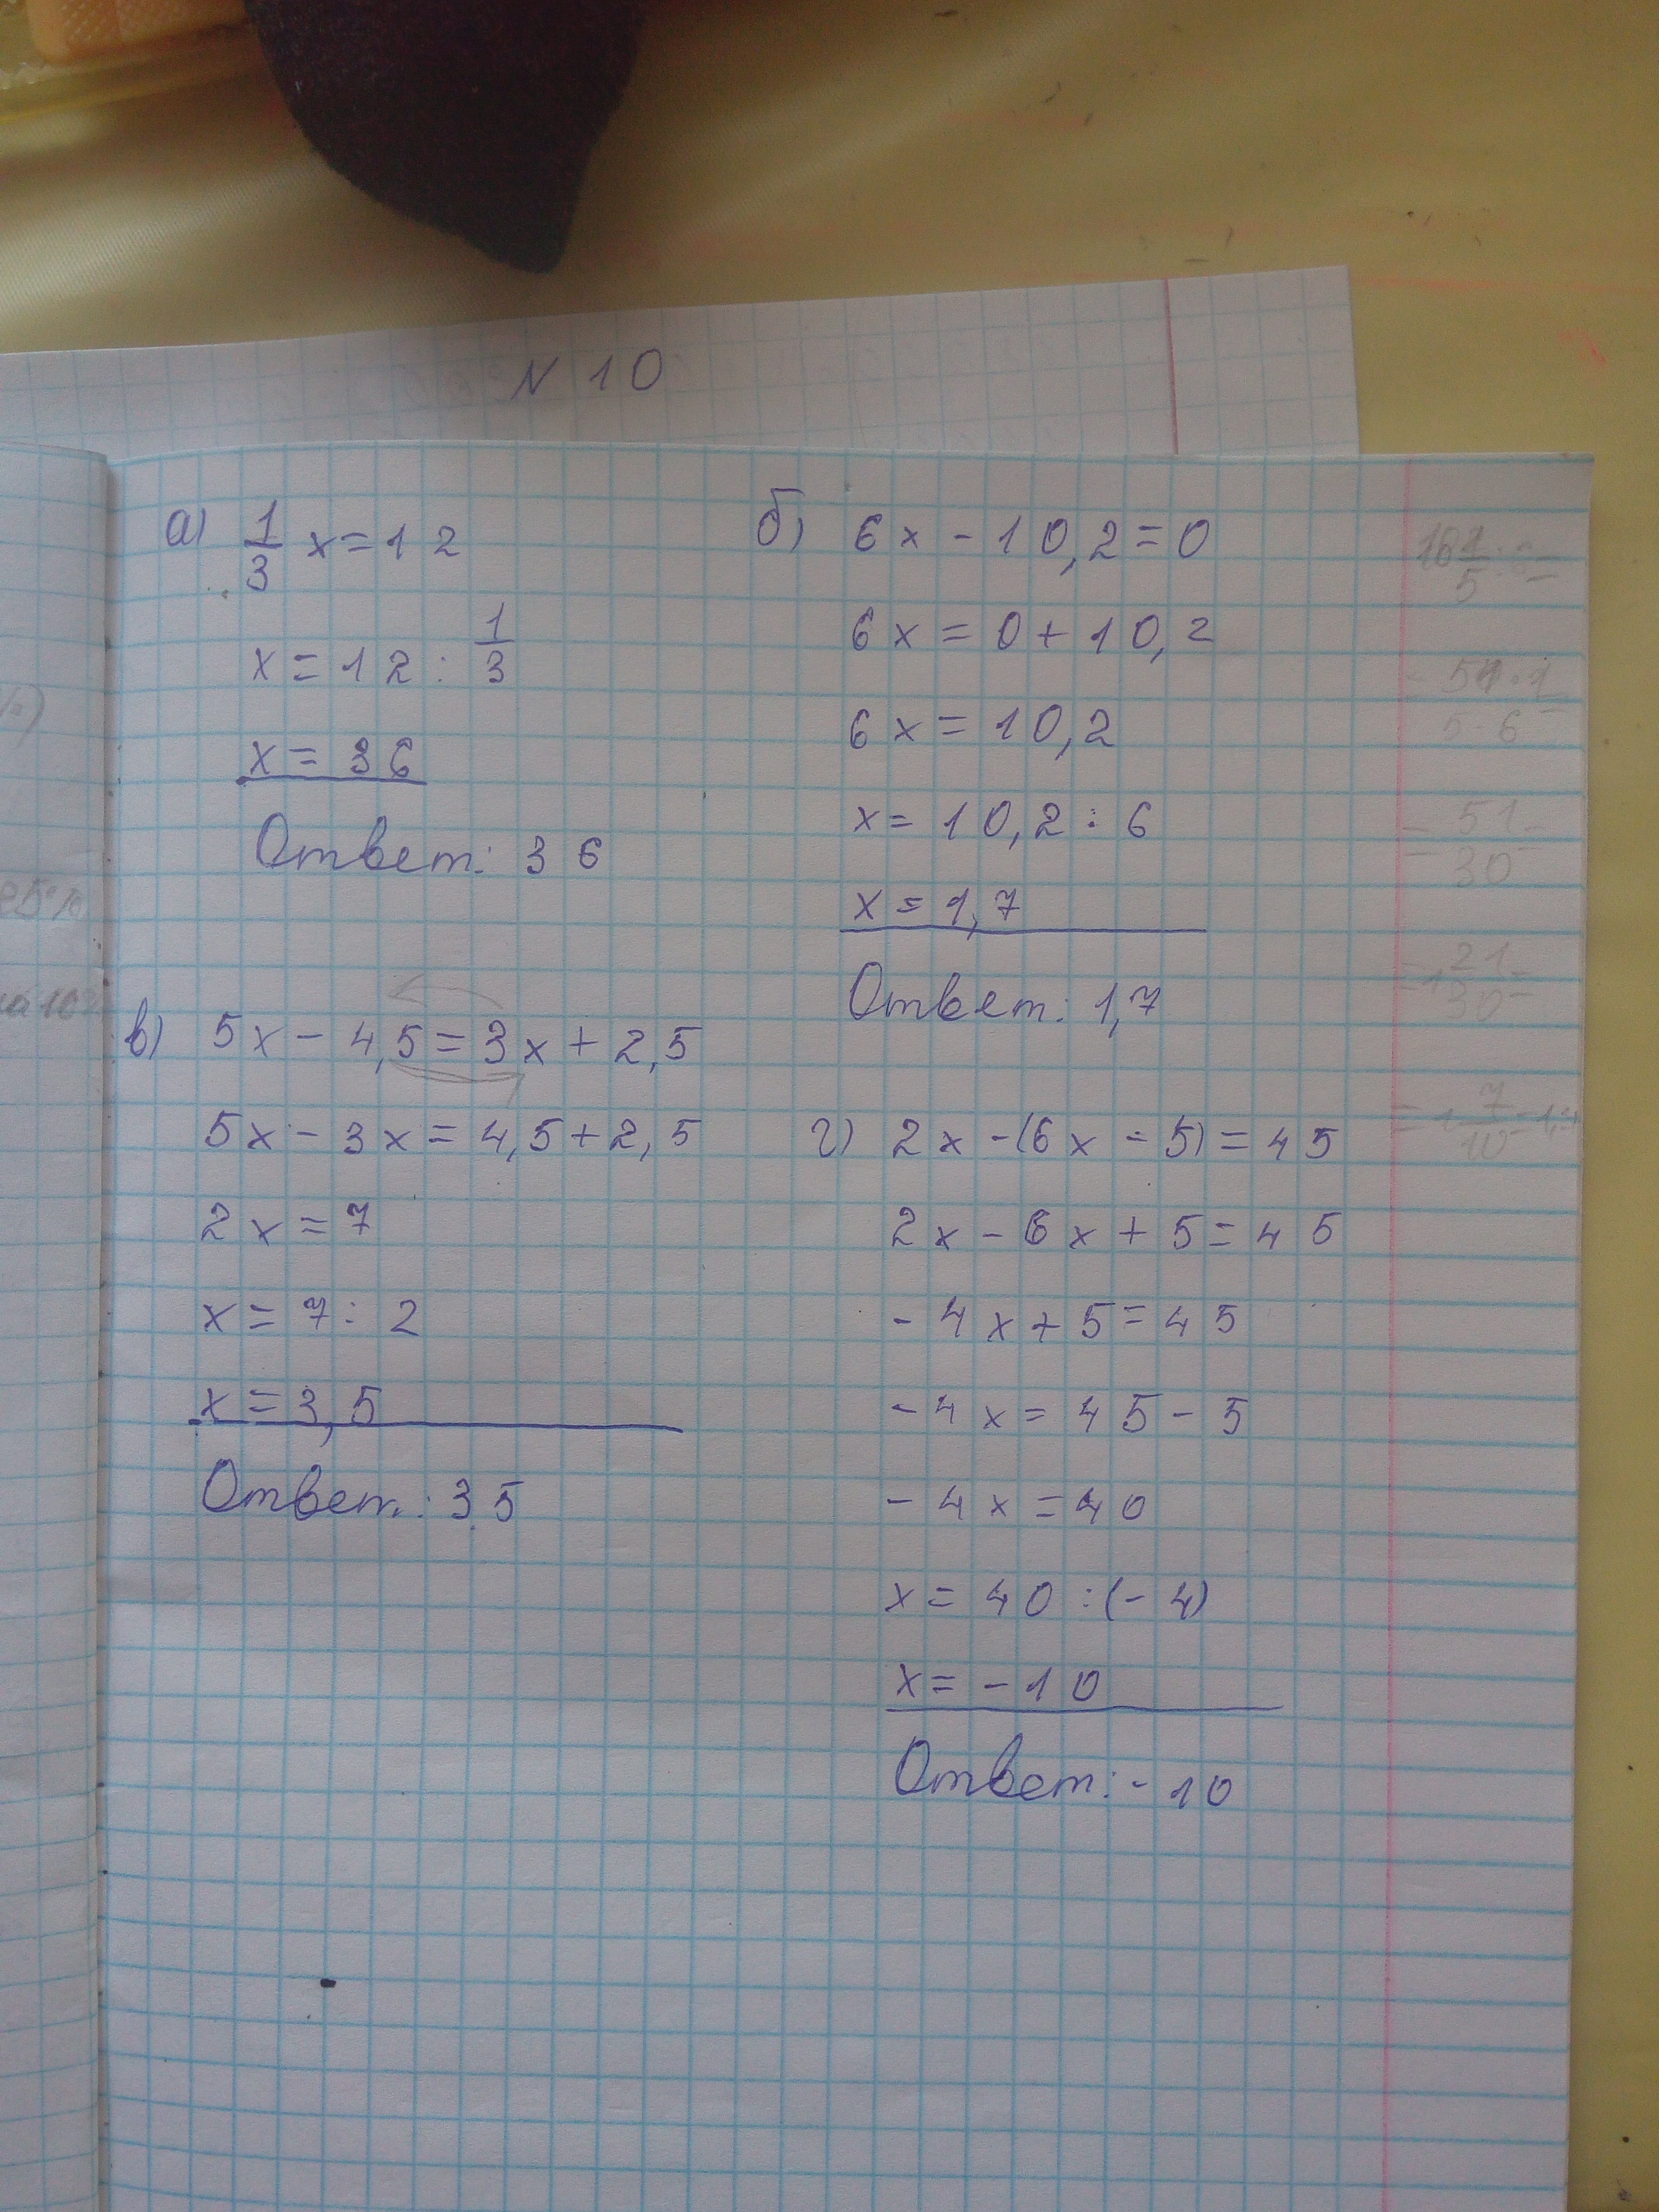 N 10
а) 1/3 x = 12
x = 12 : 1/3
x = 36
Ответ: 36
б) 6x - 10,2 = 0
6x = 0 + 10,2
6x = 10,2
x = 10,2 : 6
x = 1,7
Ответ: 1,7
в) 5x - 4,5 = 3x + 2,5
5x - 3x = 4,5 + 2,5
2x = 7
x = 7 : 2
x = 3,5
Ответ: 3,5
г) 2x - (6x - 5) = 45
2x - 6x + 5 = 45
- 4x + 5 = 45
- 4x = 45 - 5
- 4x = 40
x = 40 : (- 4)
x = - 10
Ответ: - 10
= 51/30 =
= 1 21/30 =
= 1 7/10 = 1,7
25%